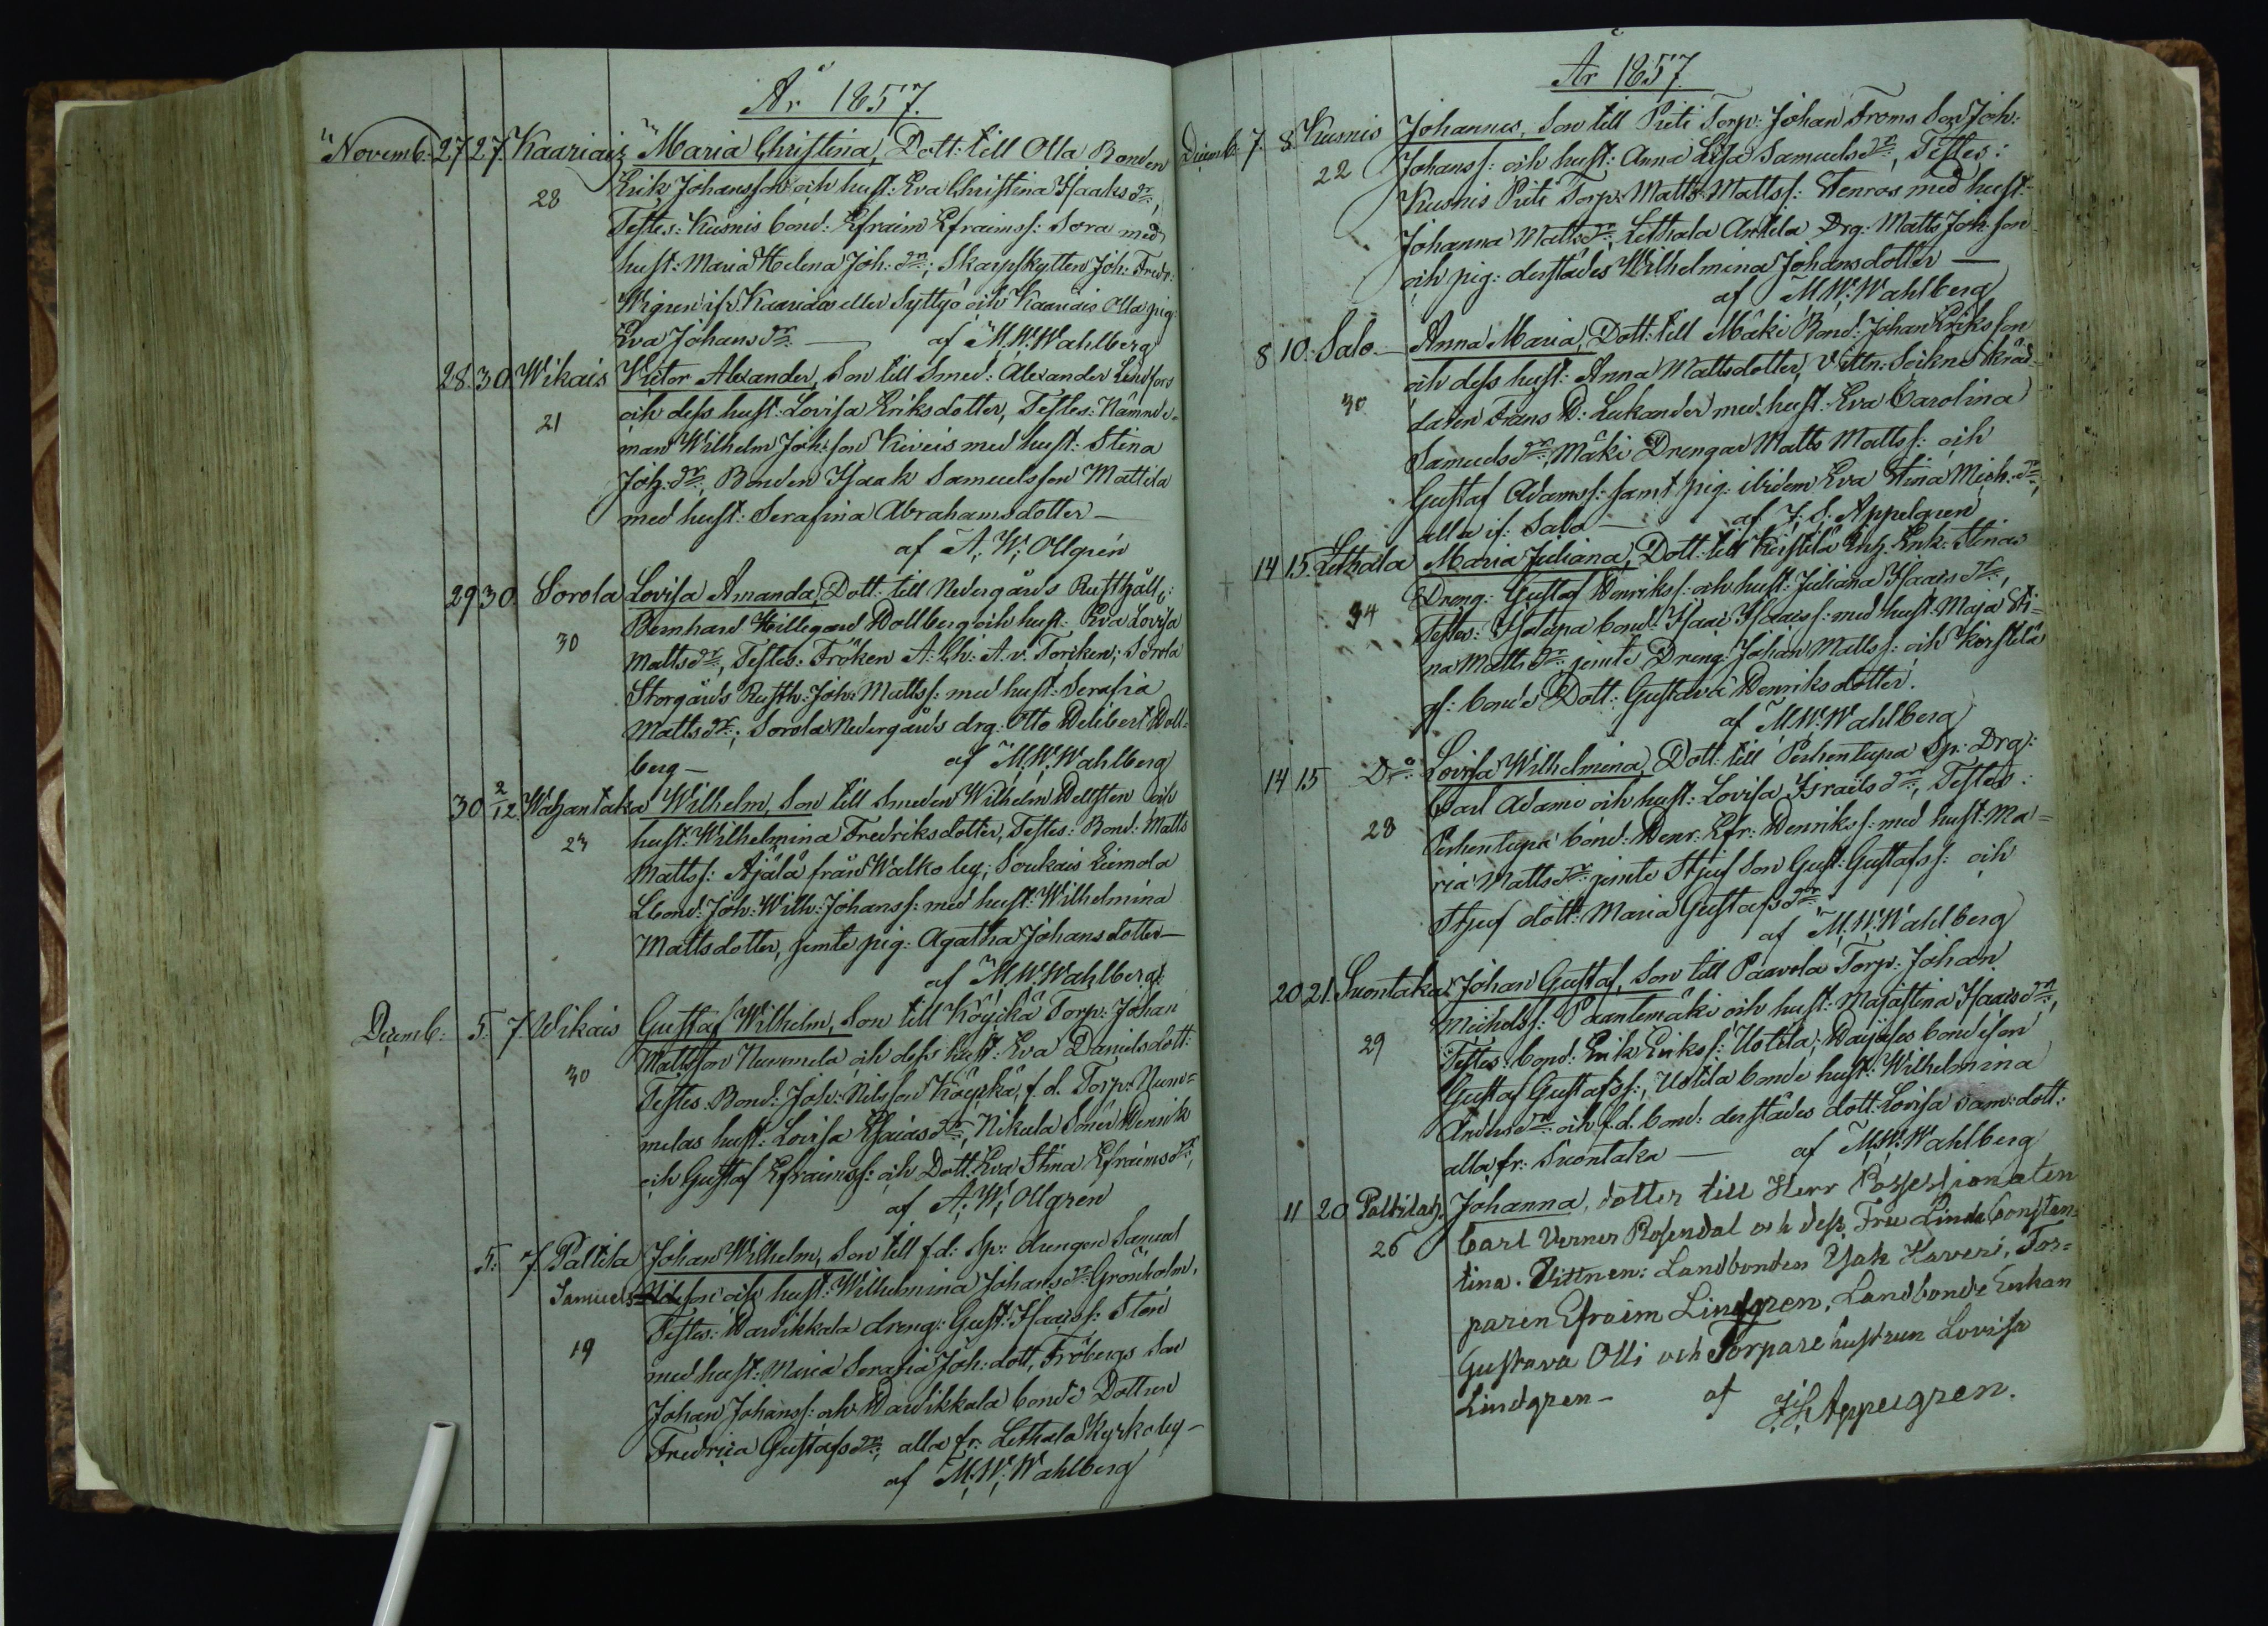 År 1857.
Novemb: 27 27 Kaariais Maria Christina, Dott: till Olla Bonden
28 Erik Johansson och hust: Eva Christina Isaaks dr,
Testes: Kusnis bond: Efraim Efraimss: Sora med
hust: Maria Helena Joh: dr; Skarpskytten Joh: Fredr:
Wigren ifr. Kaariais eller Syttyö och Kaariais Olla pig:
Eva Johans dr — af M. W. Wahlberg
28. 30. Wikais Victor Alexander, Son till Smed: Alexander Lindfors
och dess hust: Lovisa Eriksdotter, Testes: Nämnde-
21 man Wilhelm Joh: son Kiveis med hust: Stina
Joh: dr, Bonden Isaak Samuelsson Mattila
med hust: Serafina Abrahamsdotter —
af A. W. Ollgrén
29 30. Sorola Lovisa Amanda, Dott: till Nedergårds Rusthåll:
Bernhard Hillegard Dollberg och hust: Eva Lovisa
30 Matts dr, Testes: Fröken A: Ch: A. v. Torcken; Sorola
Storgårds Rusth: Joh: Mattss: med hust: Serafia
Matts dr; Sorola Nedergårds drg: Otto Delibert Doll-
berg — af M. W. Wahlberg
30 2/12. Wahantaka Wilhelm, Son till Smeden Wilhelm Dellsten och
23 hust: Wilhelmina Fredriksdotter, Testes: Bond: Matts
Mattss: Äjälä från Walko ley; Soukais Liemola
Lbond: Joh: Wilh: Johanss: med hust: Wilhelmina
Mattsdotter, jemte pig: Agatha Johansdotter —
af M. W. Wahlberg
Decemb: 5. 7. Wikais Gustaf Wilhelm, Son till Köyckä Torp: Johan
Mattsson Nummela och dess hust: Eva Danielsdott:
30 Testes: Bond: Joh: Nilsson Köyckä, f. d. Torp: Num-
melas hust: Lovisa Esaias dr, Nikula Söner Henrik
och Gustaf Efraimss: och Dott: Eva Stina Efraims dr,
af A. W. Ollgren
5. 7. Paltila Johan Wilhelm, Son till f.d. Sp: drengen Samuel
Samuelsson och hust: Wilhelmina Johans dr Gronholm,
19 Testes: Dardikkala dreng: Gust: Isaacss: Sten
med hust: Maria Serafia Joh: dott, Fröbergs Son
Johan Johanss: och Dardikkala bonde Dottren
Fredrica Gustafs dr, alla fr. Lethala Kyrkoley —
af M. W. Wahlberg
År 1857.
Decemb: 7. 8 Kusnis Johannes, Son till Prêti Torp: Johan Froms Son Joh:
22 Johanss: och hust: Anna Lisa Samuels dr, Testes:
Kusnis Prêti Torp: Matts Mattss: Stenros med hust:
Johanna Matts dr, Lethala Anttila Drg: Matts Joh: son
och pig: derstädes Wilhelmina Johansdotter —
af M. W. Wahlberg
8 10. Salo — Anna Maria, Dott: till Mäki Bond: Johan Eriksson
och dess hust: Anna Mattsdotter, Vittn: Sockne Skräd-
30 daren Frans D: Lukander med hust: Eva Carolina
Samuels dr, Mäki Drengar Matts Mattss: och
Gustaf Adamss: samt pig: ibidem Eva Stina Mich: dr,
alla if: Salo — af J. S. Appelgren
14 15. Lethala Maria Juliana, Dott: till Kirstilä Enk: Stinas
Dreng: Gustaf Henrikss: och hust: Juliana Isaacs dr,
34 Testes: Isotupa bond: Isaac Isaacss: med hust: Maja Sti-
na Matts dr jemte Dreng: Johan Mattss: och Kirstilä
gl: bonde Dott: Gustava Henriksdotter.
af M. W. Wahlberg
14 15 Do Lovisa Wilhelmina, Dott: till Perhentupa Sp: Drg:
Carl Adami och hust: Lovisa Israels dr, Testes:
28 Perhentupa bond: Henr: Efr: Henrikss: med hust: Ma-
ria Matts dr jemte Stjuf Son Gust: Gustafss: och
Stjuf dott: Maria Gustafs dr
af M. W. Wahlberg
20 21. Suontaka Johan Gustaf, Son till Paavola Torp: Johan
Michelss: Paanlemäki och hust: Majastina Isaacs dr,
29 Testes: bond: Erik Erikss: Uotila; bondeson
Gustaf Gustafss:, Uotila bonde hust: Wilhelmina
Anders dr och f.d. bond: derstädes dott: Lovisa Sam: dott:
alla fr: Suontaka — af M. W. Wahlberg
11 20 Paltila Johanna, dotter till Herr Possessionaten
26 Carl Verner Rosendal och dess Fru Linda Constan-
tina. Vittnen: Landbonden Isak Haveri, Tor-
paren Efraim Lindgren, Landbonde Enkan
Gustava Olli och Torpare hustrun Lovisa
Lindgren — af J. S. Appelgren.